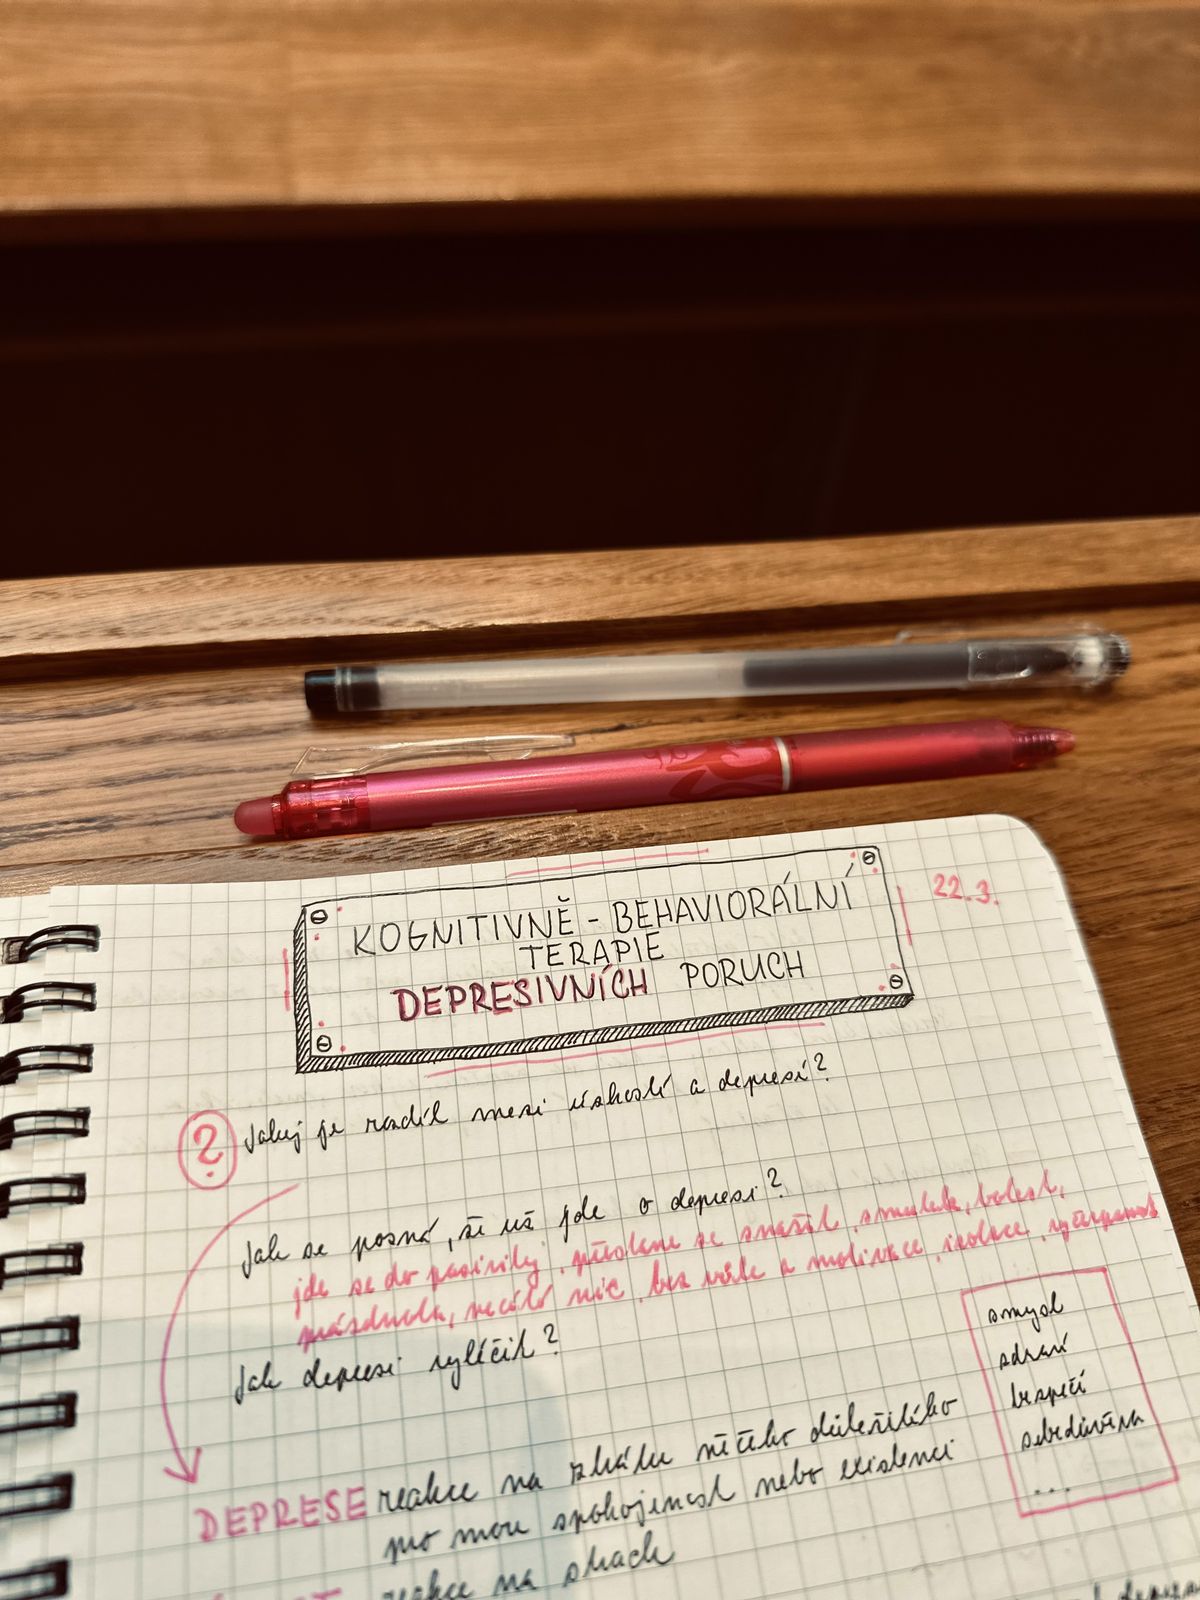 KOGNITIVNĚ - BEHAVIORÁLNÍ
TERAPIE
DEPRESIVNÍCH PORUCH
22.3.
? Jaký je rozdíl mezi úzkostí a depresí?
Jak se pozná, že už jde o depresi?
jde se do pasivity, přestane se snažit, smutek, bolest,
prázdnota, necítí nic, bez vůle a motivace, izolace, vyčerpanost
Jak depresi vyléčit?
smysl
zdraví
bezpečí
sebedůvěra
...
DEPRESE reakce na ztrátu něčeho důležitého
pro mou spokojenost nebo existenci
reakce na strach